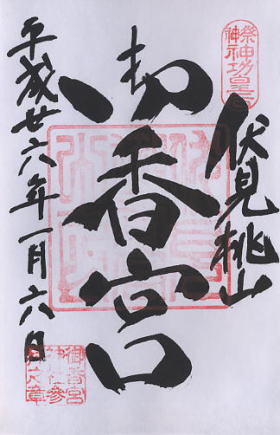 祭神
神功皇后
伏見桃山
御香宮
平成廿六年一月六日
御香宮
神社参
拝之章